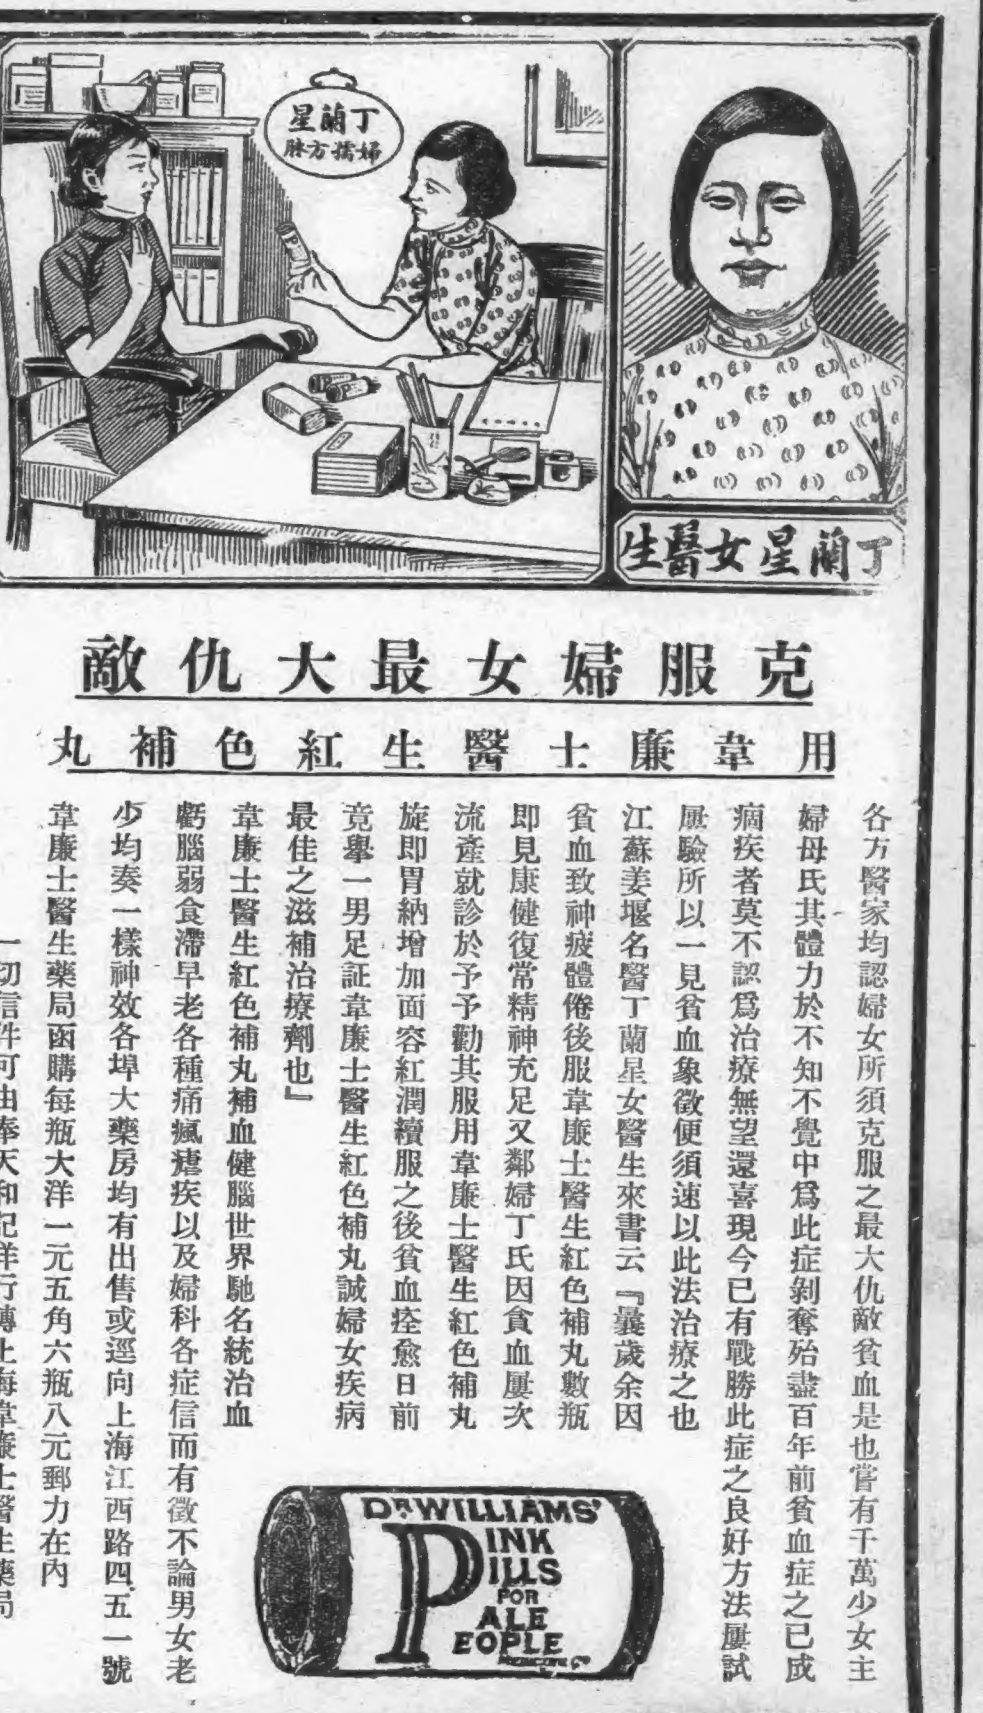 丁蘭星
婦孺方脉
丁蘭星女醫生
克服婦女最大仇敵
用韋廉士醫生紅色補丸
各方醫家均認婦女所須克服之最大仇敵貧血是也嘗有千萬少女主
婦母氏其體力於不知不覺中爲此症剝奪殆盡百年前貧血症之已成
痼疾者莫不認爲治療無望還喜現今已有戰勝此症之良好方法屢試
屢驗所以一見貧血象徵便須速以此法治療之也
江蘇姜堰名醫丁蘭星女醫生來書云『曩歲余因
貧血致神疲體倦後服韋廉士醫生紅色補丸數瓶
即見康健復常精神充足又鄰婦丁氏因貧血屢次
流產就診於予予勸其服用韋廉士醫生紅色補丸
旋即胃納增加面容紅潤續服之後貧血痊愈日前
竟舉一男足証韋廉士醫生紅色補丸誠婦女疾病
最佳之滋補治療劑也』
韋廉士醫生紅色補丸補血健腦世界馳名統治血
虧腦弱食滯早老各種痛瘋瘧疾以及婦科各症信而有徵不論男女老
少均奏一樣神效各埠大藥房均有出售或逕向上海江西路四五一號
韋廉士醫生藥局函購每瓶大洋一元五角六瓶八元郵力在內
一切信件可由奉天和記洋行轉上海韋廉士醫生藥局
DR. WILLIAMS'
PINK
PILLS
FOR
PALE
PEOPLE
MEDICINE CO